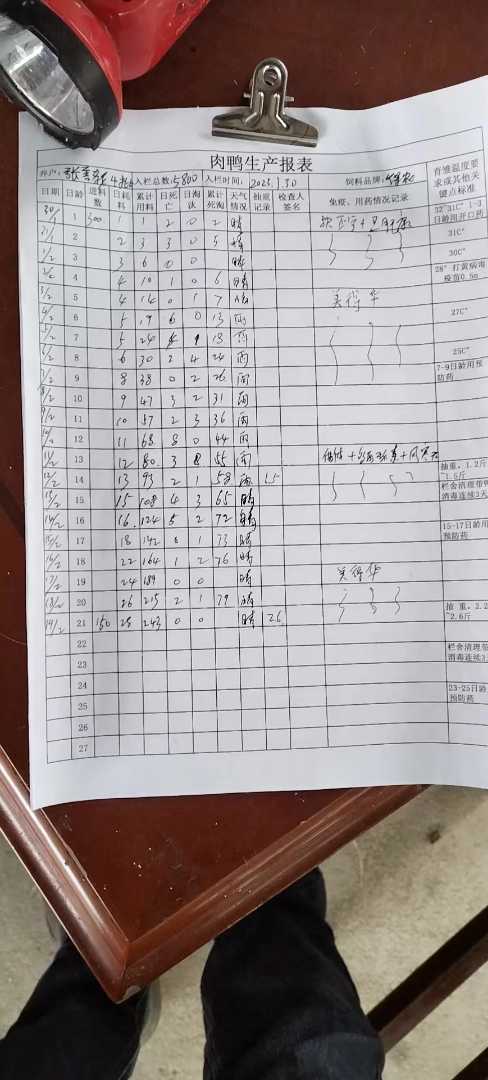 肉鸭生产报表
入栏总数:5800 入栏时间: 2023.1.30 饲料品牌:
日期 日龄 进料数 日耗料 累计用料 日死亡 日淘汰 累计死淘 天气情况 抽重记录 检查人签名 免疫、用药情况记录 育雏温度要求或其他关键点标准
30/1 1 300 1 1 2 0 2 晴 32°31C° 1-3日龄用开口药
31/1 2 2 3 3 0 5 晴 31C°
1/2 3 3 6 0 0 晴 30C°
2/2 4 4 10 1 0 6 28° 打黄病毒疫苗0.5
3/2 5 4 14 0 1 7 美得华
4/2 6 5 19 6 0 13 雨 27C°
5/2 7 5 24 4 1 18 雨
6/2 8 6 30 2 4 24 雨 25C°
7/2 9 8 38 0 2 26 雨 7-9日龄用预防药
8/2 10 9 47 3 2 31 雨
9/2 11 10 57 2 3 36 雨
10/2 12 11 68 8 0 44 雨
11/2 13 12 80 3 8 55 雨
12/2 14 13 93 2 1 58 雨 1.5 抽重:1.2斤~1.5斤
13/2 15 15 108 4 3 65 晴 栏舍清理带 消毒连续3天
14/2 16 16 124 5 2 72 晴
15/2 17 18 142 0 1 73 晴 15-17日龄用预防药
16/2 18 22 164 1 2 76 晴
17/2 19 24 189 0 0 晴 美得华
18/2 20 26 215 2 1 79 晴 抽重:2.2~2.6斤
19/2 21 150 28 243 0 0 晴 2.6
22 栏舍清理带 消毒连续3
23
24 23-25日龄 预防药
25
26
27